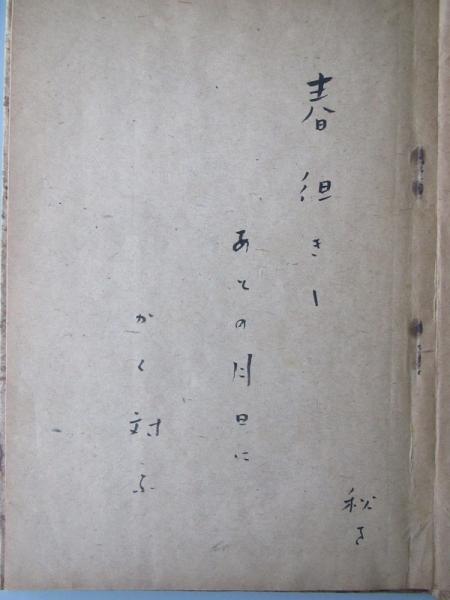 春徂きし
あとの月日に
かく対ふ
秋を